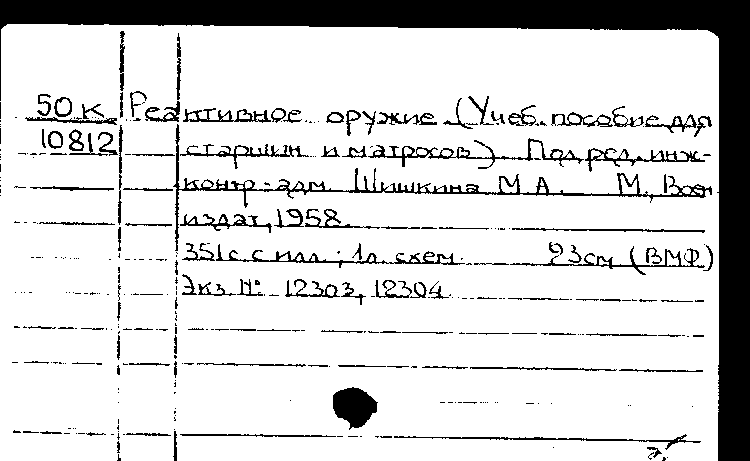 50 к Реактивное оружие (Учеб. пособие для
10812 старшин и матросов) Под ред. инж-
контр-адм. Шишкина М.А. М., Воен
издат, 1958.
351с. с илл.; 1л. схем 23см (ВМФ)
Экз. №: 12303, 12304